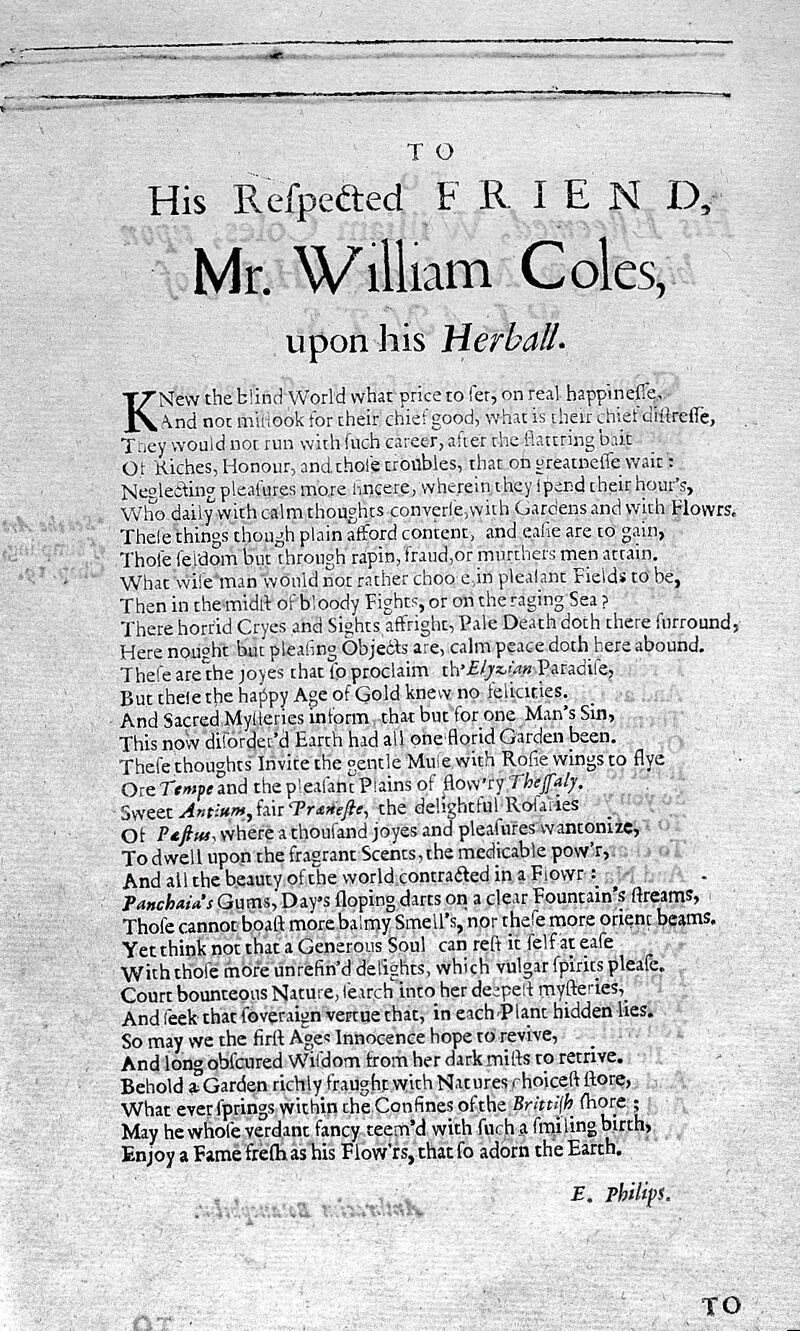 TO
His Reſpected FRIEND,
Mr. William Coles,
upon his Herball.
KNew the blind World what price to ſet, on real happineſſe,
And not miſlook for their chief good, what is their chief diſtreſſe,
They would not run with ſuch career, after the flattring bait
Of Riches, Honour, and thoſe troubles, that on greatneſſe wait:
Neglecting pleaſures more ſincere, wherein they ſpend their hour's,
Who daily with calm thoughts converſe, with Gardens and with Flowrs.
Theſe things though plain afford content, and eaſie are to gain,
Thoſe ſeldom but through rapin, fraud, or murthers men attain.
What wiſe man would not rather choo e, in pleaſant Fields to be,
Then in the midſt of bloody Fights, or on the raging Sea?
There horrid Cryes and Sights affright, Pale Death doth there ſurround,
Here nought but pleaſing Objects are, calm peace doth here abound.
Theſe are the joyes that ſo proclaim th'Elyzian Paradiſe,
But theſe the happy Age of Gold knew no felicities.
And Sacred Myſteries inform, that but for one Man's Sin,
This now diſorder'd Earth had all one florid Garden been.
Theſe thoughts Invite the gentle Muſe with Roſie wings to flye
Ore Tempe and the pleaſant Plains of flow'ry Theſſaly.
Sweet Antium, fair Præneſte, the delightful Roſaries
Of Pæſtus, where a thouſand joyes and pleaſures wantonize,
To dwell upon the fragrant Scents, the medicable pow'r,
And all the beauty of the world contracted in a Flowr:
Panchaia's Gums, Day's ſloping darts on a clear Fountain's ſtreams,
Thoſe cannot boaſt more balmy Smell's, nor theſe more orient beams.
Yet think not that a Generous Soul can reſt it ſelf at eaſe
With thoſe more unrefin'd delights, which vulgar ſpirits pleaſe.
Court bounteous Nature, ſearch into her deepeſt myſteries,
And ſeek that ſoveraign vertue that, in each Plant hidden lies.
So may we the firſt Ages Innocence hope to revive,
And long obſcured Wiſdom from her dark miſts to retrive.
Behold a Garden richly fraught with Natures choiceſt ſtore,
What ever ſprings within the Confines of the Brittiſh ſhore;
May he whoſe verdant fancy teem'd with ſuch a ſmiling birth,
Enjoy a Fame freſh as his Flow'rs, that ſo adorn the Earth.
E. Philips.
TO